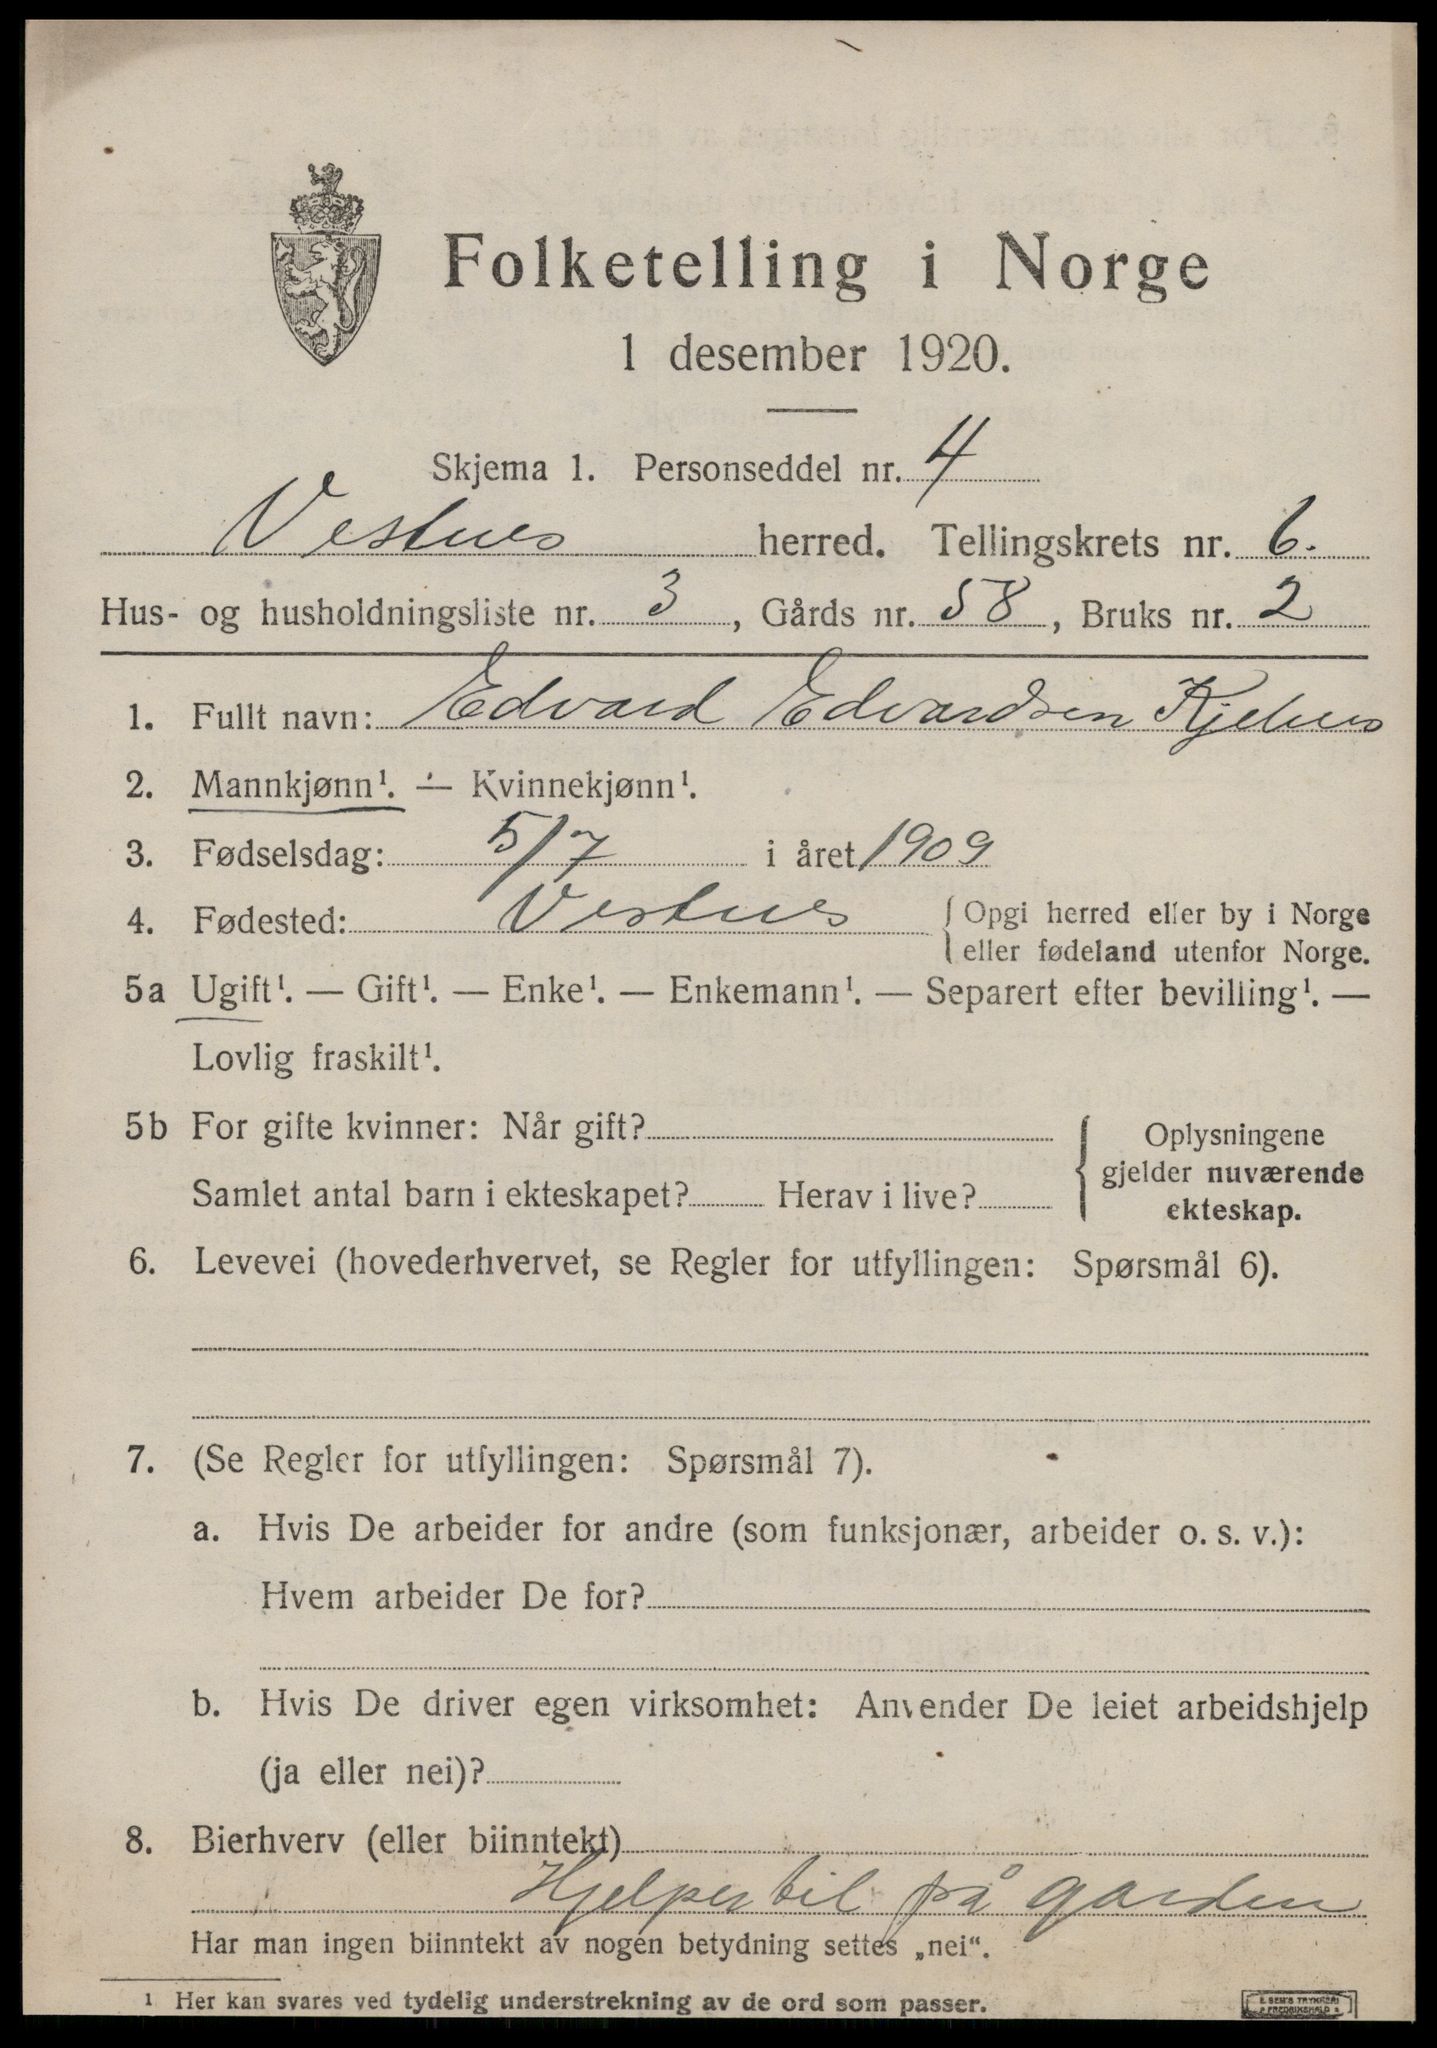 Folketelling i Norge
1 desember 1920.
Skjema 1. Personseddel nr. 4
Vestnes herred. Tellingskrets nr. 6.
Hus- og husholdningsliste nr. 3, Gårds nr. 58, Bruks nr. 2
1. Fullt navn: Edvard Edvardsen Kjelnes
2. Mannkjønn¹. — Kvinnekjønn¹.
3. Fødselsdag: 5/7 i året 1909
4. Fødested: Vestnes {Opgi herred eller by i Norge
eller fødeland utenfor Norge.
5a Ugift¹. — Gift¹. — Enke¹. — Enkemann¹. — Separert efter bevilling¹. —
Lovlig fraskilt¹.
5b For gifte kvinner: Når gift?
Samlet antal barn i ekteskapet? Herav i live?
Oplysningene
gjelder nuværende
ekteskap.
6. Levevei (hovederhvervet, se Regler for utfyllingen: Spørsmål 6).
7. (Se Regler for utfyllingen: Spørsmål 7).
a. Hvis De arbeider for andre (som funksjonær, arbeider o. s. v.):
Hvem arbeider De for?
b. Hvis De driver egen virksomhet: Anvender De leiet arbeidshjelp
(ja eller nei)?
8. Bierhverv (eller biinntekt)
Hjelper til på garden
Har man ingen biinntekt av nogen betydning settes „nei“.
1 Her kan svares ved tydelig understrekning av de ord som passer.
E. SEM'S TRYKKERI
FREDRIKSHALD